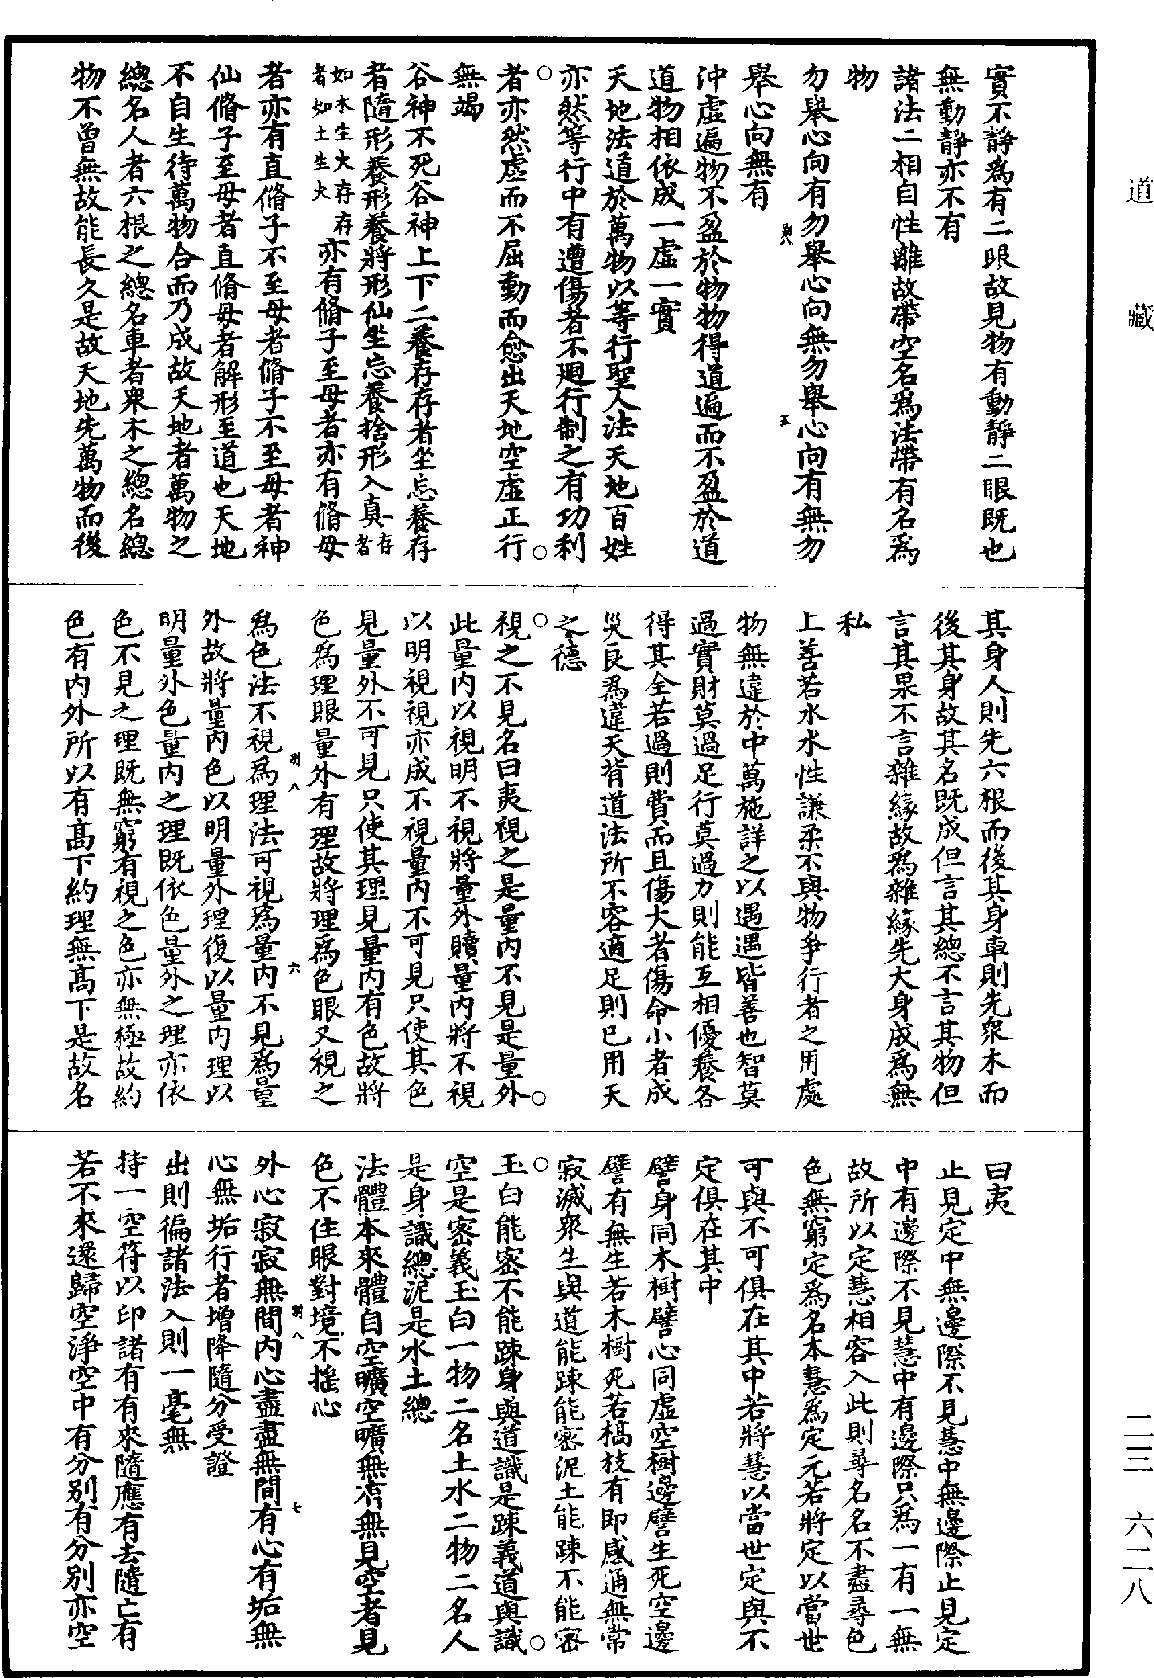 道藏
二三 六二八
實不靜爲有二眼故見物有動靜二眼既也
無動靜亦不有
諸法二相自性離故帶空名爲法帶有名爲
物
勿舉心向有勿舉心向無勿舉心向有無勿
舉心向無有
沖虛遍物不盈於物物得道遍而不盈於道
道物相依成一虛一實
天地法道於萬物以等行聖人法天地百姓
亦然等行中有遭傷者不迴行制之有功利
者亦然虛而不屈動而愈出天地空虛正行
無竭
谷神不死谷神上下二養存存者坐忘養存
者隨形養形養將形仙坐忘養捨形入真存者
如木生火存存者如土生火亦有脩子至母者亦有脩母
者亦有直脩子不至母者脩子不至母者神
仙脩子至母者直脩母者解形至道也天地
不自生待萬物合而乃成故天地者萬物之
總名人者六根之總名車者衆木之總名總
物不曾無故能長久是故天地先萬物而後
其身人則先六根而後其身車則先衆木而
後其身故其名既成但言其總不言其物但
言其果不言雜緣故爲雜緣先大身成爲無
私
上善若水水性謙柔不與物爭行者之用處
物無違於中萬施詳之以遇遇皆善也智莫
過實財莫過足行莫過力則能互相優養各
得其全若過則費而且傷大者傷命小者成
災良爲違天背道法所不容適足則已用天
之德
視之不見名曰夷視之是量内不見是量外
此量内以視明不視將量外贖量内將不視
以明視視亦成不視量内不可見只使其色
見量外不可見只使其理見量内有色故將
色爲理眼量外有理故將理爲色眼又視之
爲色法不視爲理法可視爲量内不見爲量
外故將量内色以明量外理復以量内理以
明量外色量内之理既依色量外之理亦依
色不見之理既無窮有視之色亦無極故約
色有内外所以有髙下約理無髙下是故名
曰夷
止見定中無邊際不見慧中無邊際止見定
中有邊際不見慧中有邊際只爲一有一無
故所以定慧相容入此則尋名名不盡尋色
色無窮定爲名本慧爲定元若將定以當世
可與不可俱在其中若將慧以當世定與不
定俱在其中
譬身同木樹譬心同虛空樹邊譬生死空邊
譬有無生若木樹死若槁枝有即感通無常
寂滅衆生與道能踈能密泥土能踈不能密
玉白能密不能踈身與道識是踈義道與識
空是密義玉白一物二名土水二物二名人
是身識總泥是水土總
法體本來體自空曠空曠無有無見空者見
色不住眼對境不搖心
外心寂寂無間内心盡盡無間有心有垢無
心無垢行者增降隨分受證
出則徧諸法入則一毫無
持一空符以印諸有有來隨應有去隨亡有
若不來還歸空淨空中有分别有分别亦空